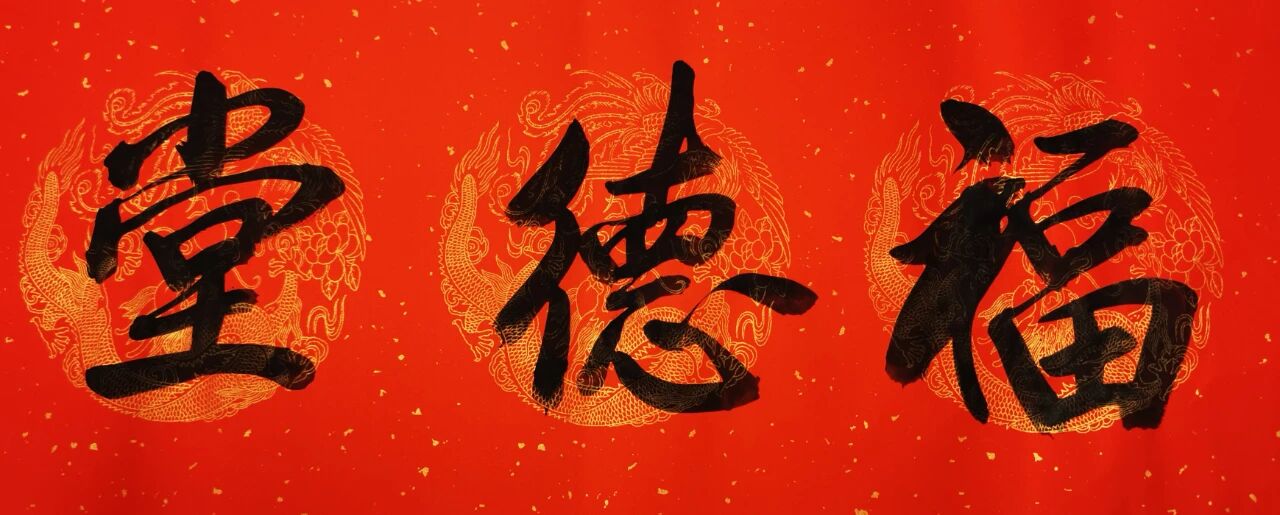 福德堂